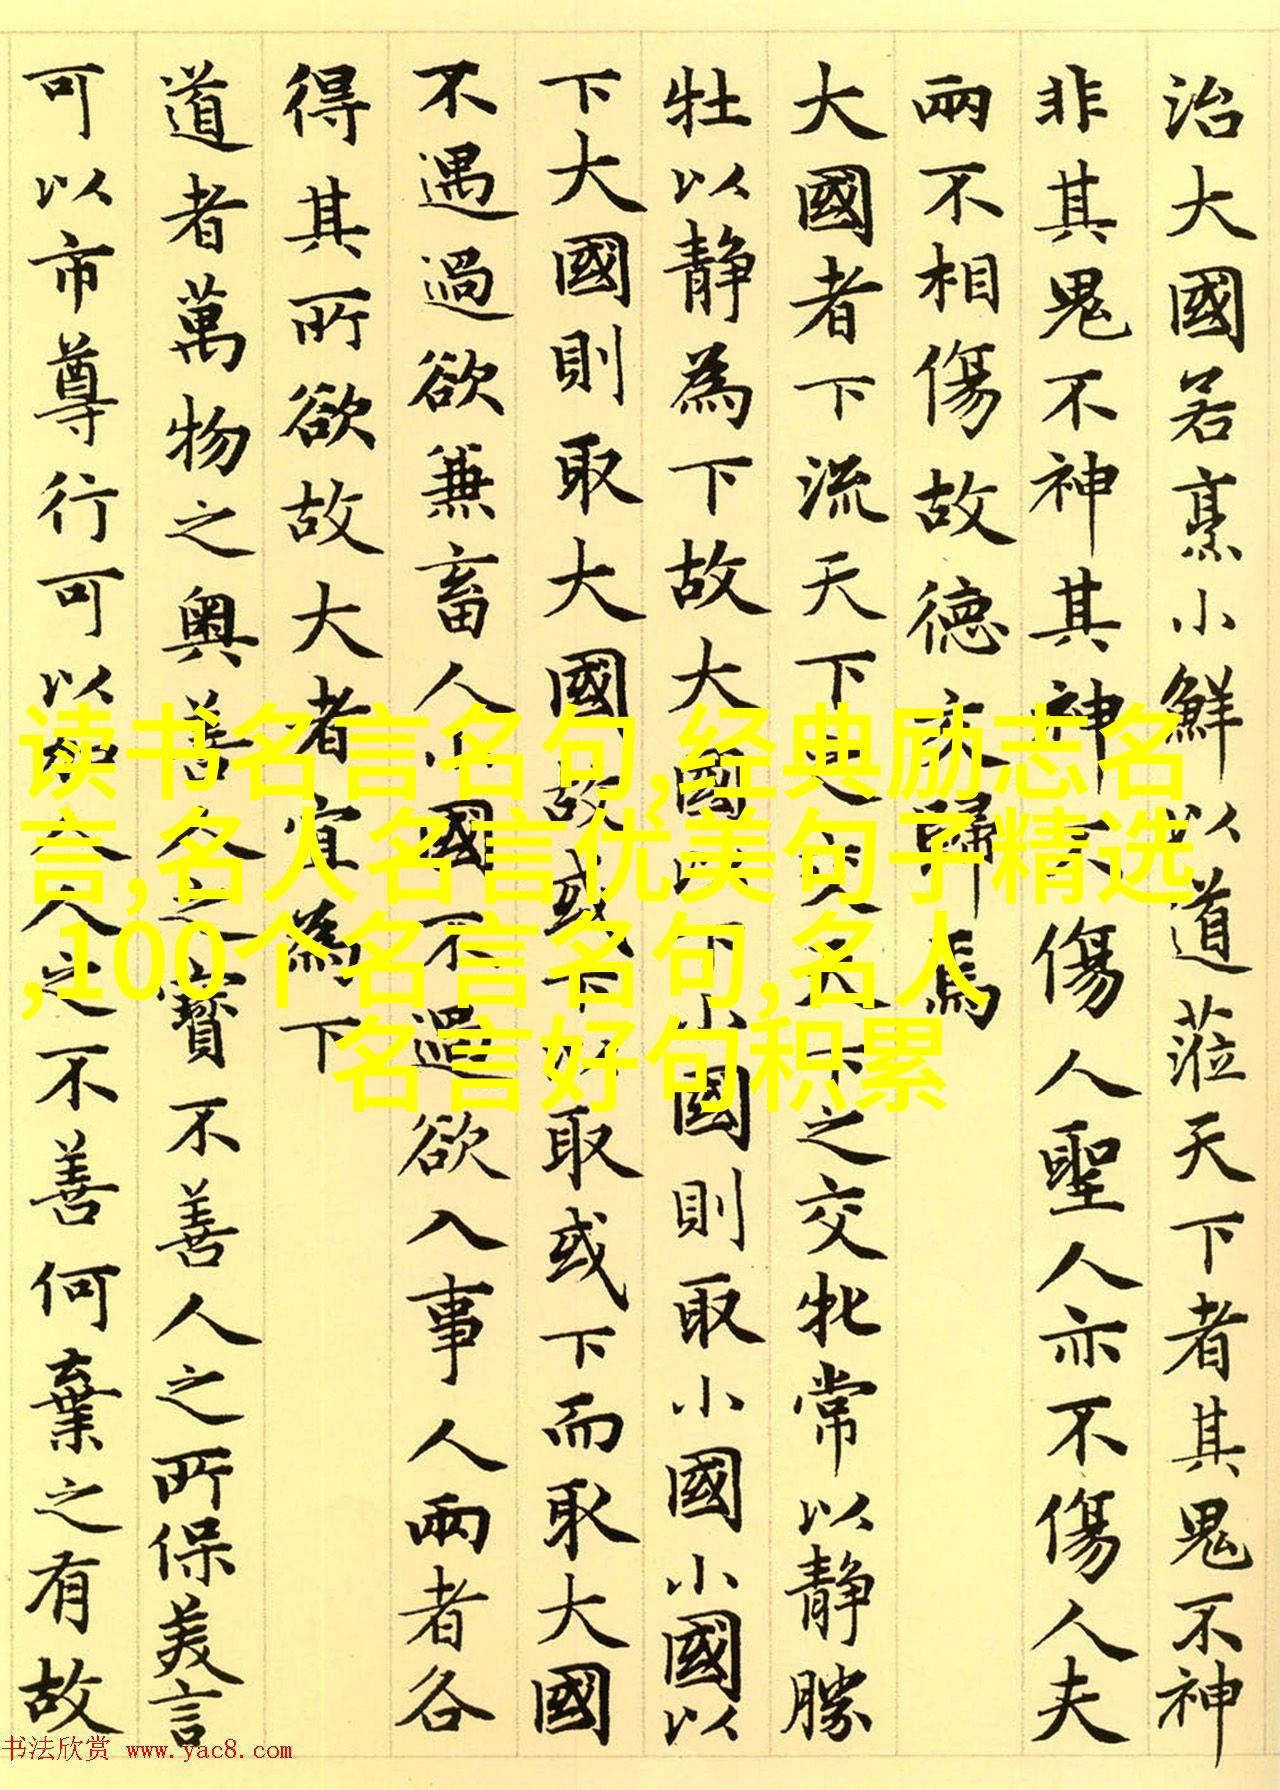 治大國若烹小鮮以道蒞天下者其鬼不神
非其鬼不神其神不傷人聖人亦不傷人夫
兩不相傷故德交歸焉
大國者下流天下之交天下之交牝常以静勝
牡以静為下故大國以下小國則取小國小國以
下大國則取大國故或下以取或下而取大國
不遇過欲兼畜人小國不還欲入事人兩者各
得其所欲故大者宜為下
道者萬物之奧善人之寶不善人之所保美言
可以市尊行可以加人人之不善何棄之有故
读书名言名句,经典励志名
言,名人名言优美句子精选
,100个名言名句,名人
名言好句积累
书法欣赏 www.yac8.com